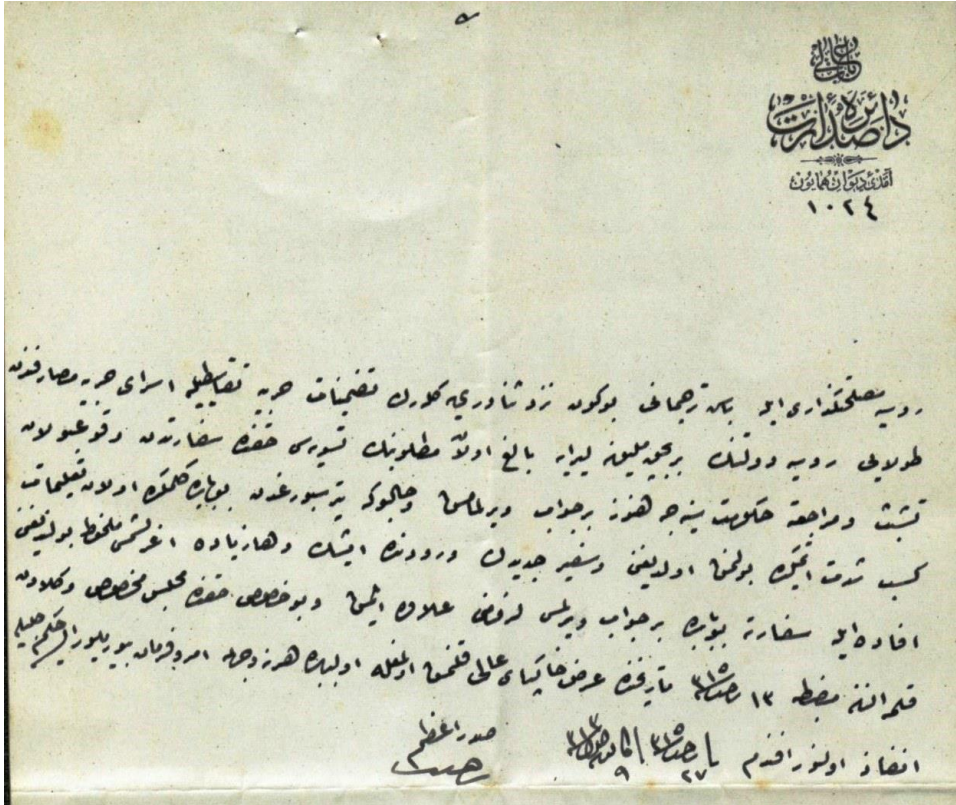 باب عالی
دائرهٔ صدارت
آمدئ دیوان همایون
١٠٢٤
روسیه مصلحتگذاری ایله باش ترجمانی بوکون نزد ثناوری‌یه کلورک تضمینات حربیه تقاسیطیله اسرای حربیه مصارفندن
طولایی روسیه دولتنک بر بچق ملیون لیرایه بالغ اولان مطلوبنک تسویه‌سی حقنده سفارتدن وقوعبولان
تشبث و مراجعته حکومت سنیه‌جه هنوز بر جواب ویرلمامش وحالبوکه پترسبورغدن بوبابده کلمکده اولان تعلیمات
کسب شدت ایتمکده بولنمش اولدیغنی وسفیر جدیدک ورودنده ایشک دها زیاده اغرلشمسی ملحوظ بولندیغنی
افاده ایله سفارته بوبابده بر جواب ویرلمسی لزومنی علاوه ایتمش وبو خصوص حقنده مجلس مخصوص وکلادن
قلمه النان مضبطه ١٣ رجب سنه ٣١٥ تاریخنده عرض خاکپای عالی قلنمش اولمغله اولبابده هر نه وجهله امر وفرمان بیوریلور ایسه حکم جلیلی
انفاذ اولنور افندم
٢٧ رجب سنه ٣١٥ ٩ کانون اول سنه ٣١٣
صدر اعظم
رفعت